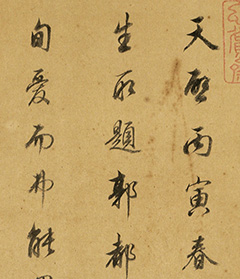 天啓丙寅春
生取題郭都
旬愛而弗能